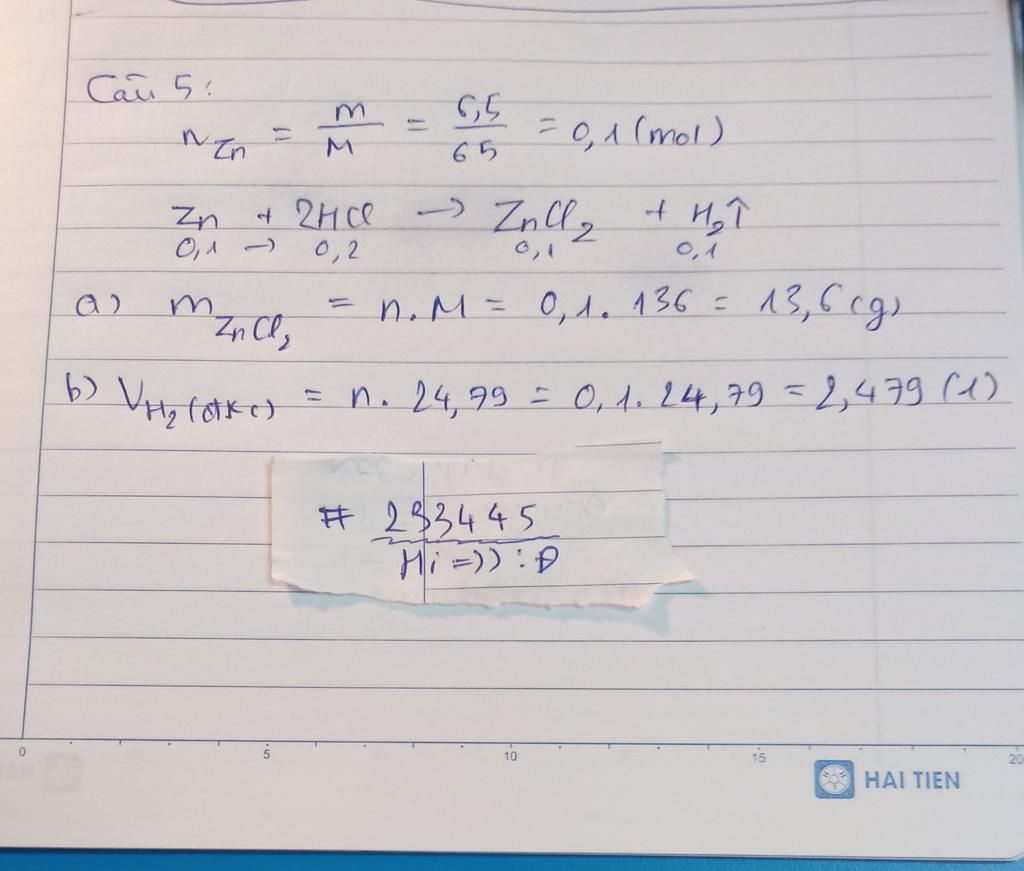 Câu 5:
n Zn = m/M = 6,5/65 = 0,1 (mol)
Zn + 2HCl → ZnCl2 + H2↑
0,1 → 0,2 0,1 0,1
a) m ZnCl2 = n.M = 0,1. 136 = 13,6 (g)
b) V H2 (đkc) = n. 24,79 = 0,1. 24,79 = 2,479 (l)
# 233445
Hi =)) :D
0 5 10 15 20
HAI TIEN